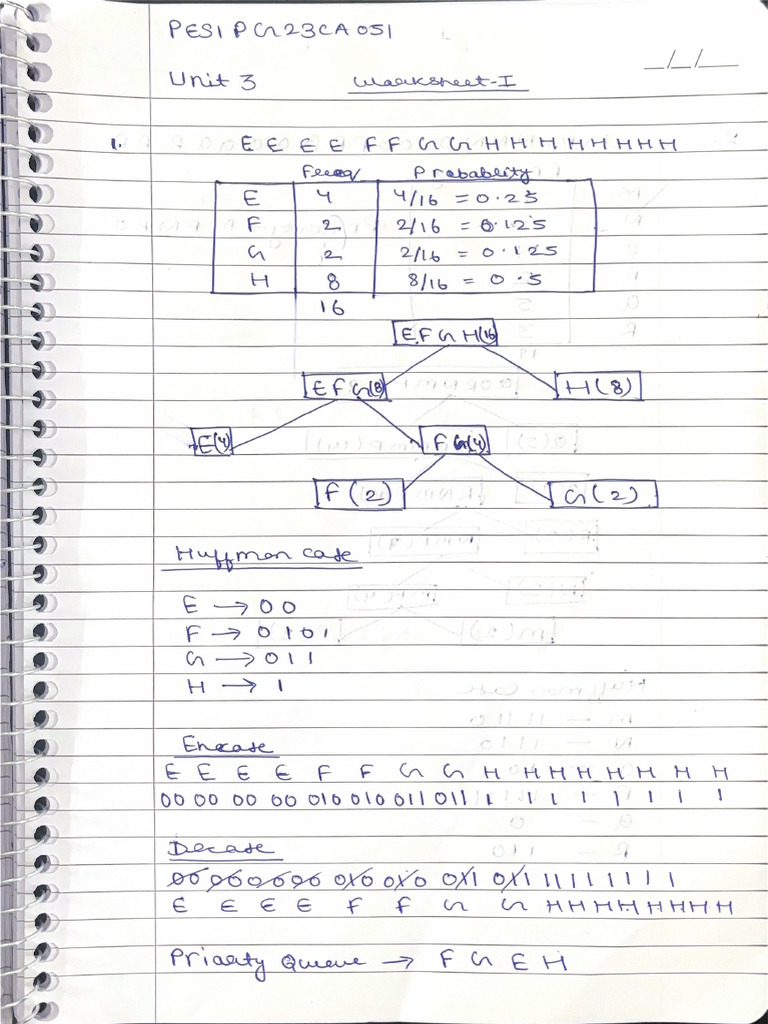 PES1PG23CA051
_/_/__
Unit 3 Worksheet-I
1. E E E E F F G G H H H H H H H H
Freq Probability
E 4 4/16 = 0.25
F 2 2/16 = 0.125
G 2 2/16 = 0.125
H 8 8/16 = 0.5
16
EFGH(16)
EFG(8) H(8)
E(4) FG(4)
F(2) G(2)
Huffman code
E → 00
F → 0101
G → 011
H → 1
Encode
E E E E F F G G H H H H H H H H
00 00 00 00 010 010 011 011 1 1 1 1 1 1 1 1
Decode
00 00 00 00 010 010 011 011 1 1 1 1 1 1 1 1
E E E E F F G G H H H H H H H H
Priority Queue → F G E H